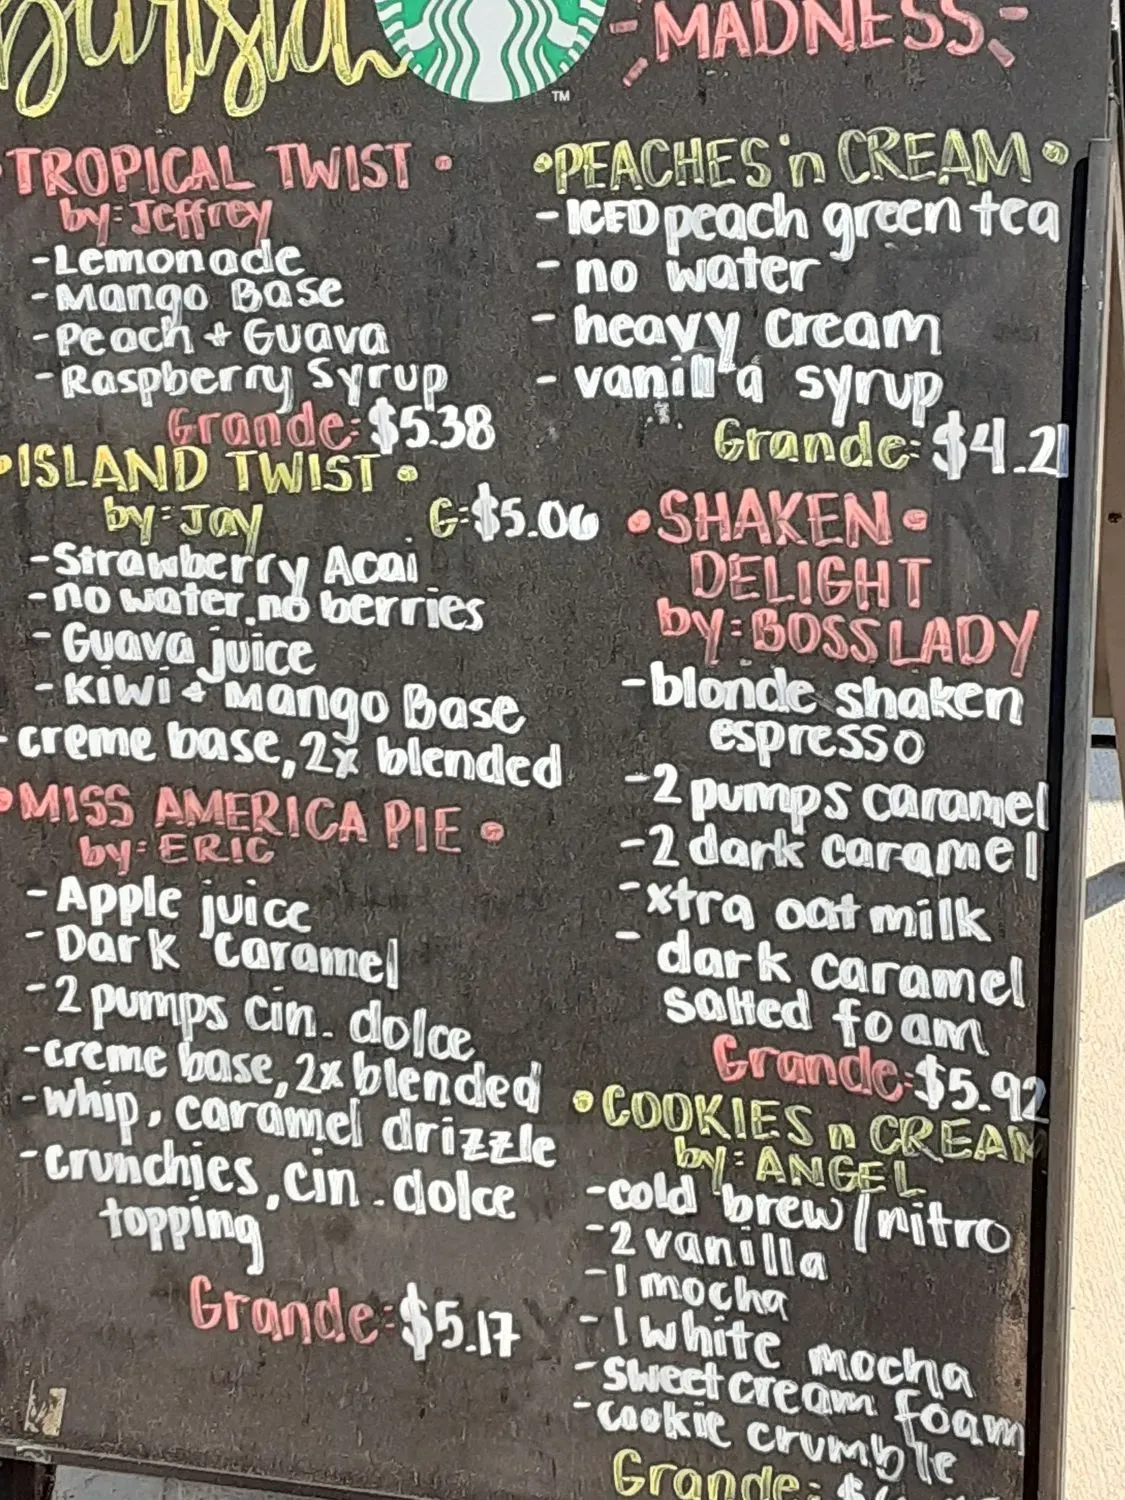 Barista
MADNESS
TM
• TROPICAL TWIST •
by: Jeffrey
- Lemonade
- Mango Base
- Peach + Guava
- Raspberry Syrup
Grande: $5.38
• ISLAND TWIST •
by: Jay G: $5.06
- Strawberry Acai
- no water, no berries
- Guava juice
- Kiwi + Mango Base
- creme base, 2x blended
• MISS AMERICA PIE •
by: ERIC
- Apple juice
- Dark Caramel
- 2 pumps cin. dolce
- creme base, 2x blended
- whip, caramel drizzle
- crunchies, cin. dolce
topping
Grande: $5.17
• PEACHES 'n CREAM •
- ICED peach green tea
- no water
- heavy cream
- vanilla syrup
Grande: $4.21
• SHAKEN •
DELIGHT
by: BOSS LADY
- blonde shaken
espresso
- 2 pumps caramel
- 2 dark caramel
- xtra oatmilk
- dark caramel
salted foam
Grande: $5.92
• COOKIES n CREAM
by: ANGEL
- cold brew/nitro
- 2 vanilla
- 1 mocha
- 1 white mocha
- sweet cream foam
- cookie crumble
Grande: $